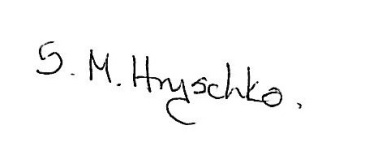 S. M. Hryschko.